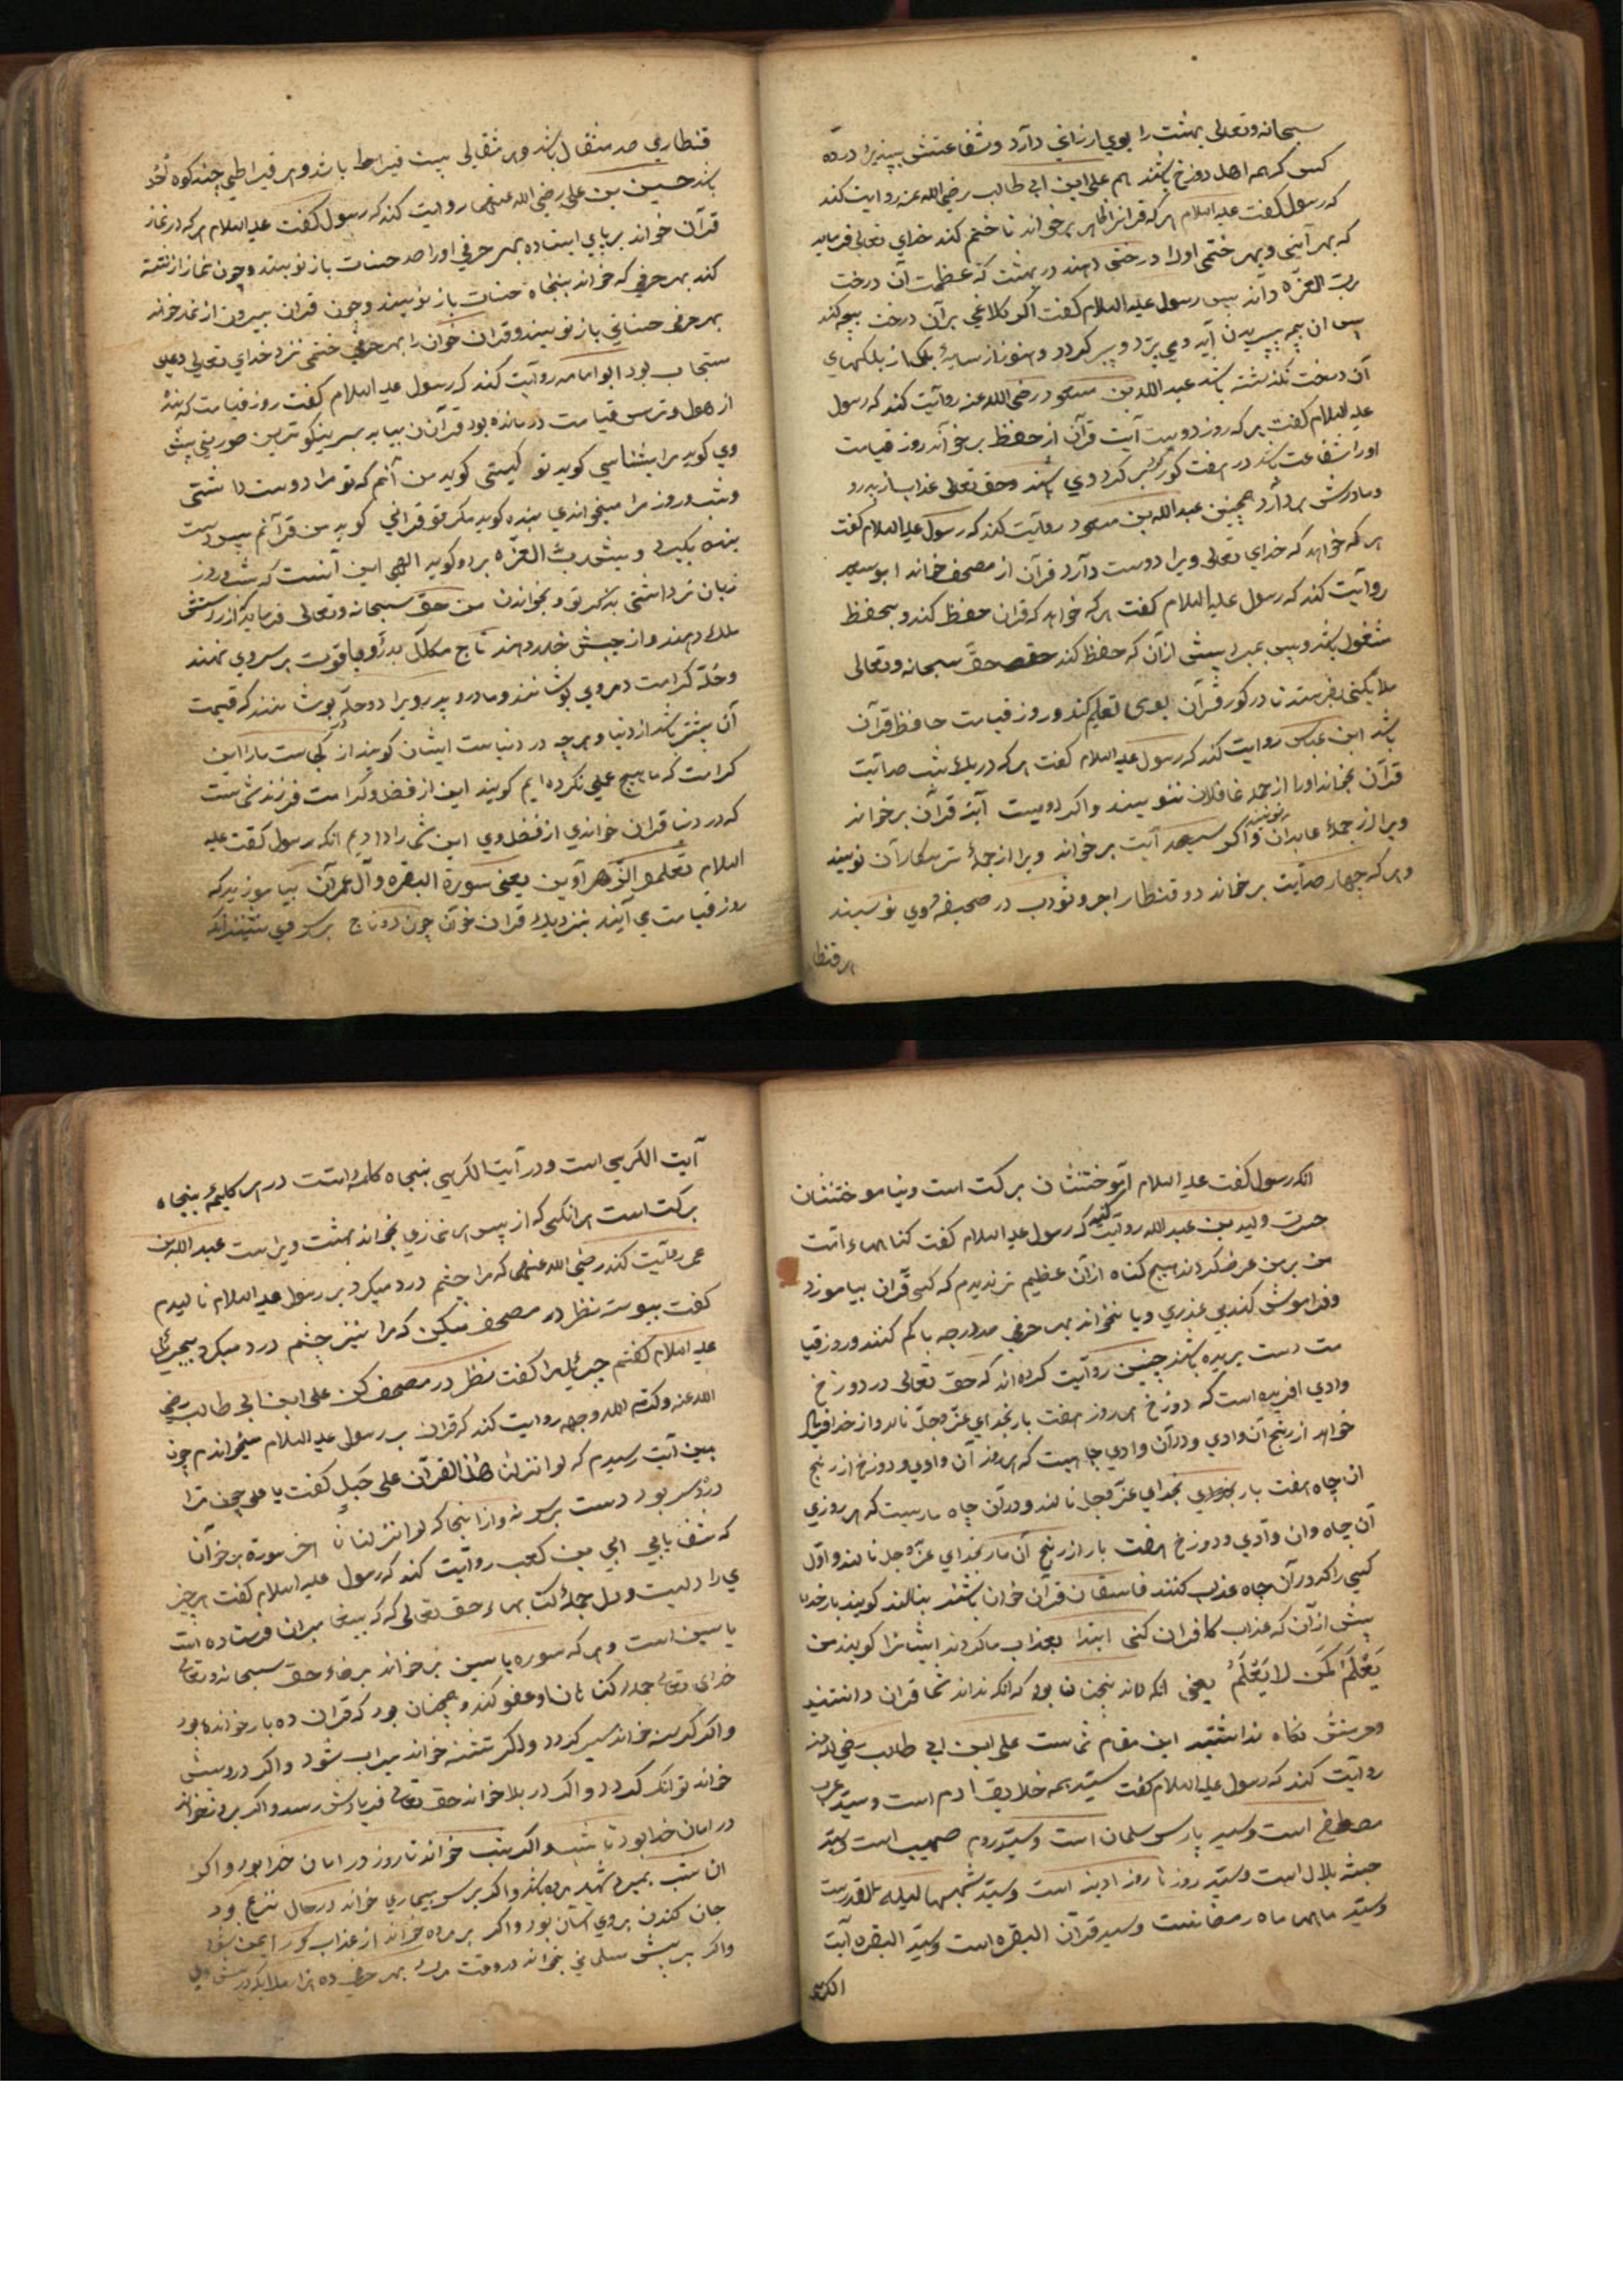 سبحانه وتعالی بهشت را بوی ارزانی دارد وشفاعتش بپذیرد در ده
کس که همه اهل دوزخ باشند هم علی ابن ابی طالب رضی الله عنه روایت کند
که رسول گفت علیه السلام هر که قرآن از ظاهر برخواند تا ختم کند خدای تعالی فرماید
که بهر آیتی وبهر ختمی اورا درختی دهند در بهشت که عظمت آن درخت
رب العزه داند پس رسول علیه السلام گفت اگر کلاغی بر آن درخت بچه کند
پس ان بچه بپریدن آید ومی پرد و پیر گردد وهنوز از سایهٔ بلک از بلکهای
آن درخت نگذشته باشد عبد الله بن مسعود رضی الله عنه روایت کند که رسول
علیه السلام گفت هر که روز دویست آیت قرآن از حفظ برخواند روز قیامت
اورا شفاعت باشد در هفت گور که گرد بر گرد وی باشند وحق تعالی عذاب از پدر و
ومادرش بردارد همچنین عبد الله بن مسعود روایت کند که رسول علیه السلام گفت
هر که خواهد که خدای تعالی ویرا دوست دارد قرآن از مصحف خواند ابو سعید
روایت کند که رسول علیه السلام گفت هر که خواهد که قران حفظ کند وبحفظ
مشغول باشد وپس بمیرد پیش از آن که حفظ کند حق سبحانه وتعالی
ملایکتی بفرستد تا در گور قرآن بوی تعلیم کند وروز قیامت حافظ قرآن
باشد ابن عباس روایت کند که رسول علیه السلام گفت هر که در یک شب صد آیت
قرآن بخواند اورا از جمله غافلان ننویسند واکر دویست آیة قرآن برخواند
ویرا از جملهٔ عابدان نویسند واکر سیصد آیت برخواند ویرا از جملهٔ ترسکاران نویسند
وهر که چهار صد آیت برخواند دو قنطار اجر وثواب در صحیفهٔ وی نویسند
هر قنطا
قنطاری صد مثقال باشد وهر مثقالی بیست قیراط باشد وهر قیراطی چند کوه احد
باشد حسین بن علی رضی الله عنهما روایت کند که رسول گفت علیه السلام هر که در نماز
قرآن خواند بر پای ایستاده بهر حرفی اورا صد حسنات باز نویسند وچون نماز از نشسته
کند بهر حرفی که خواند پنجاه حسنات باز نویسند وچون قران بیرون از نماز خواند
بهر حرفی حسناتی باز نویسند وقران خوان را بهر حرفی ختمی نزد خدای تعالی دعای
مستجاب بود ابو امامه روایت کند که رسول علیه السلام گفت روز قیامت که بنده
از هول وترس قیامت درمانده بود قرآن بیاید بر نیکوترین صورتی پیش
وی گوید مرا بشناسی گوید تو کیستی گوید من آنم که تو مرا دوست داشتی
وشب وروز مرا میخواندی بنده گوید مگر تو قرانی گوید من قرآنم پس دست
بنده بگیرد وپیش رب العزه برد وگوید الهی این آنست که شب وروز
زبان تر داشتی بذکر تو وبخواندن من حق سبحانه وتعالی فرماید که از راستش
ملک دهند واز چپش خلد دهند تاج مکلل بدر ویاقوت بر سر وی نهند
وحلّهٔ کرامت در وی پوشانند ومادر و پدر ویرا دو حلّه پوشانند که قیمت
آن بیشتر باشد از دنیا وهر چه در دنیاست ایشان گویند از کجاست مارا این
کرامت که ما هیچ عملی نکرده ایم گویند این از فضل وکرامت فرزند شماست
که در دنیا قران خواندی از فضل وی این شما را دادیم انکه رسول گفت علیه
السلام تعلمو الزهراوین یعنی سورة البقره وآل عمرآن بیاموزید که
روز قیامت می آیند بنزدیک قران خوان چون دو تاج بر سر وی نشینند انکه
انکه رسول گفت علیه السلام آموختنشان برکت است ونیاموختنشان
حسرت ولید بن عبد الله روایت کند که رسول علیه السلام گفت گناهها امت
من بر من عرض کردند هیچ گناه از آن عظیم تر ندیدم که کسی قرآن بیاموزد
وفراموش کند بی عذری ویا نخواند بهر حرفی صد درجه با کم کنند وروز قیا
مت دست بریده باشد چنین روایت کرده اند که حق تعالی در دوزخ
وادی افریده است که دوزخ هر روز هفت بار بخدای عزّ وجلّ نالد واز خدا فریاد
خواهد از رنج آن وادی ودر آن وادی چاهیست که هر روز آن وادی ودوزخ از رنج
ان چاه هفت بار بخدای عزّ وجل نالند ودر آن چاه ماریست که هر روزی
آن چاه وان وادی ودوزخ هفت بار از رنج آن مار بخدای عزّ وجل نالند واوّل
کسی را که در آن چاه عذاب کنند فاسقان قرآن خوان باشند بنالند گویند بار خدایا
پیش از آن که عذاب کافران کنی ابتدا بعذاب ما کردند ایشانرا گویند من
یَعْلَمُ کَمَن لا یَعْلَمُ یعنی انکه داند نچنان بود که انکه نداند شما قران دانستید
وحرمتش نگاه نداشتید این مقام شماست علی ابن ابی طالب رضی الله عنه
روایت کند که رسول علیه السلام گفت سیّد همه خلایق ادم است وسیّد عرب
مصطفی است وسید پارس سلمان است وسیّد روم صهیب است وسیّد
حبشه بلال است وسیّد روزنا روز ادینه است وسیّد شبها لیلة القدرست
وسیّد ماهها ماه رمضانست وسید قرآن البقره است وسیّد البقره آیت
الکرسی
آیت الکرسی است ودر آیت الکرسی پنجاه کلمه است در هر کلیمهٔ پنجاه
برکت است هر انکسی که از پس هر نمازی بخواند بهشت ویراست عبد الله بن
عمر روایت کند رضی الله عنهما که مرا چشم درد میکرد بر رسول علیه السلام نالیدم
گفت پیوسته نظر در مصحف میکن که مرا نیز چشم درد میکرد بجبرئیل
علیه السلام گفتم جبرئیل مرا گفت نظر در مصحف کن علی ابن ابی طالب رضی
الله عنه وکرّم الله وجهه روایت کند که قران بر رسول علیه السلام میخواندم چون
بدین آیت رسیدم که لو انزلنا هذا القرآن علی جَبَل گفت یا علی چون ترا
درد سر بود دست بر سر نه واز اینجا که لو انزلنا تا اخر سورة بر خوان
که شفا یابی ابی بن کعب روایت کند که رسول علیه السلام گفت هر چیز
ی را دلیست ودل جملهٔ کتابهاء حق تعالی که به پیغامبران فرستاده است
یاسین است وهر که سوره یاسین بر خواند برضاء حق سبحانه وتعالی
خدای تعالی جمله گناهان او عفو کند وهمچنان بود که قران ده بار خوانده بود
واکر گرسنه خواند سیر گردد واکر تشنه خواند سیراب شود واکر درویش
خواند توانگر گردد واکر در بلا خواند حق تعالی فریادش رسد واکر بروز خواند
در امان خدا بود تا شب واکر بشب خواند تا روز در امان خدا بود واکر
ان شب بمیرد شهید مرده باشد واکر بر سر بیماری خواند در حال نزع بود
جان کندن بر وی آسان بود واکر بر مرده خواند از عذاب گور ایمن شود
واکر بر پیش مسلمانی بخواند در وقت مرگ بهر حرفی ده هزار ملایکه در پیش وی